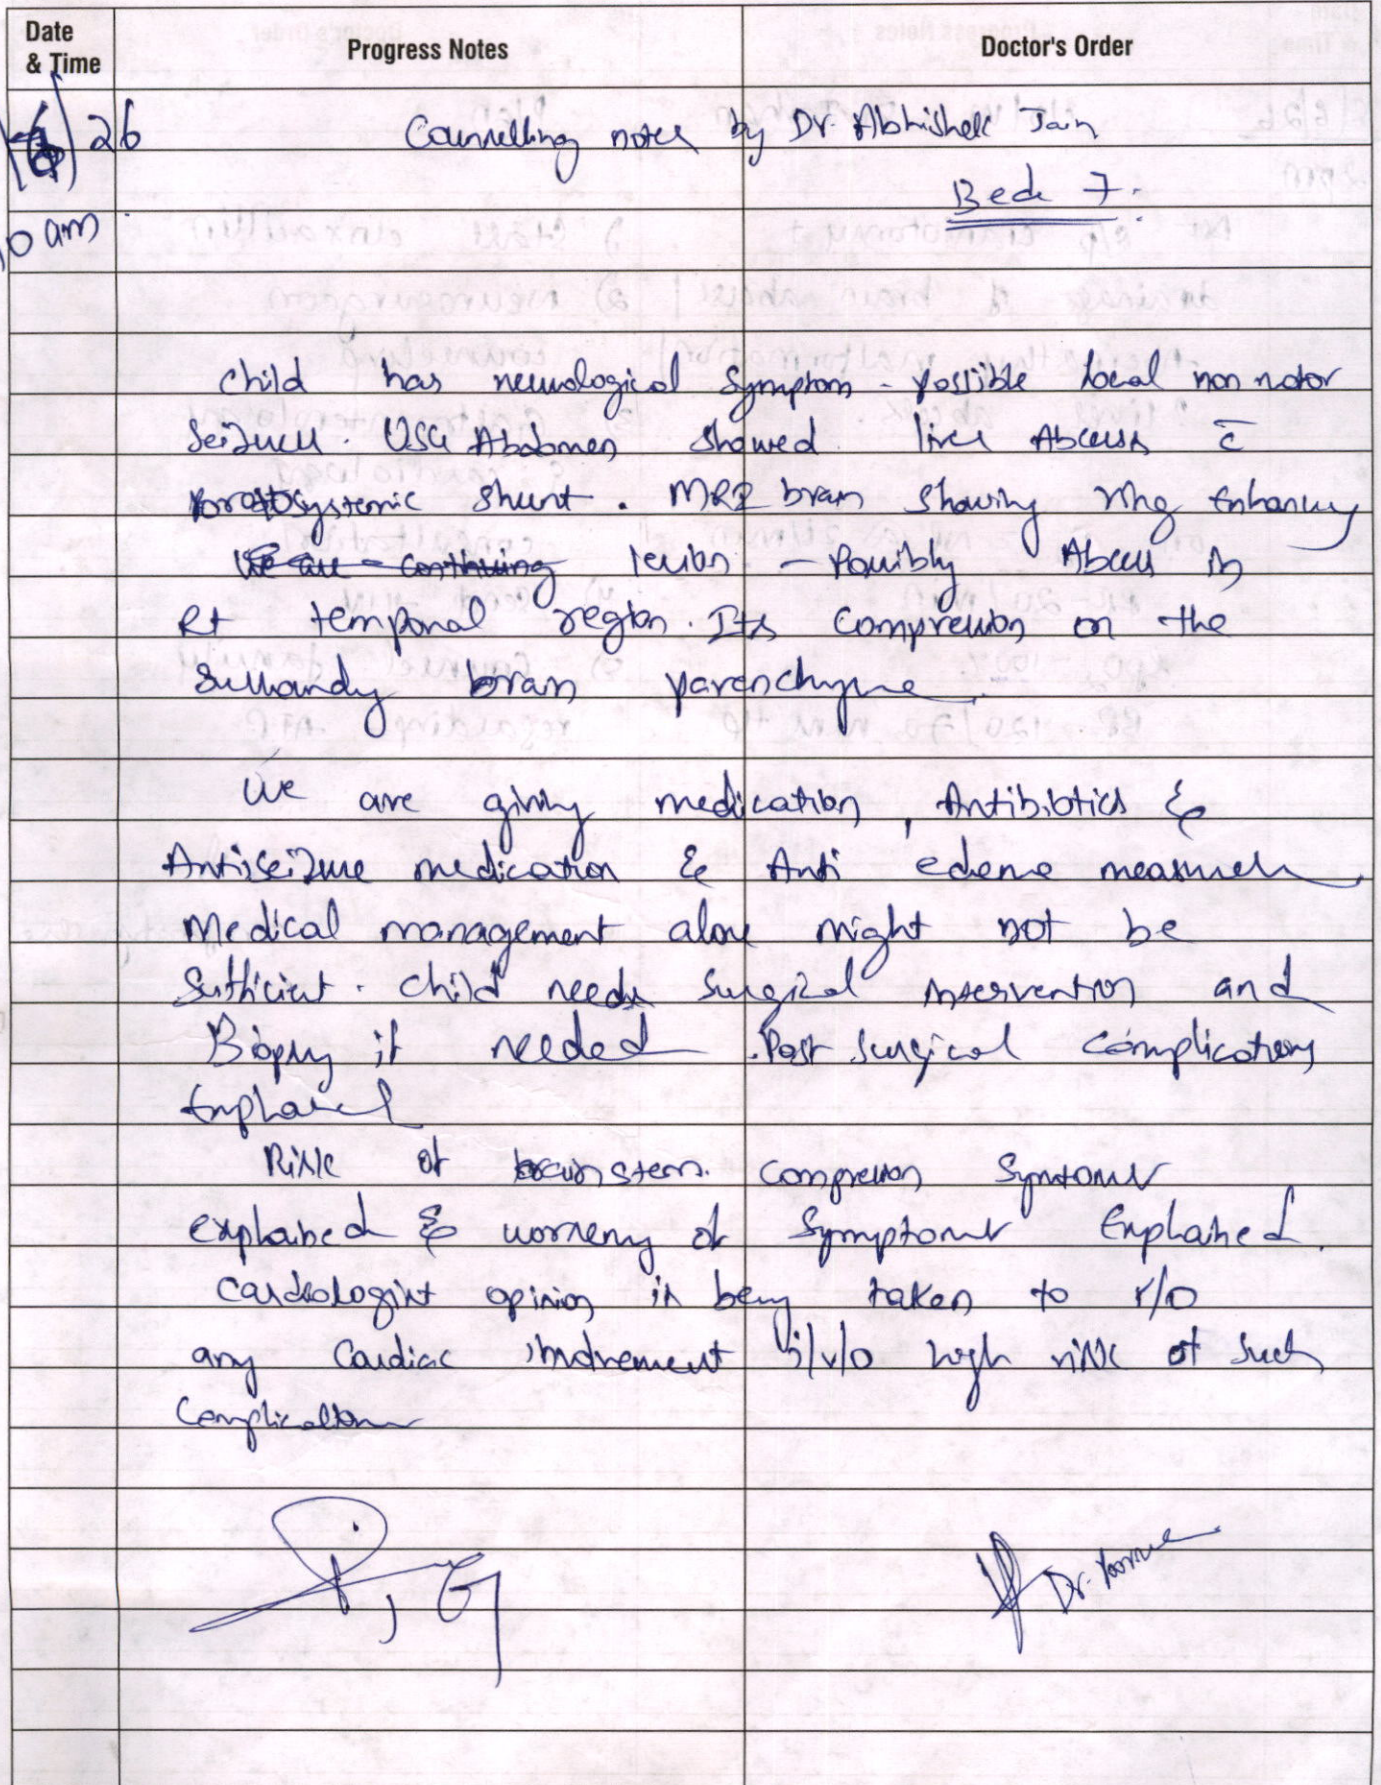 Date
& Time
Progress Notes
Doctor's Order
26
Counselling notes by Dr. Abhishek Jain
Bed 7.
0 am
Child has neurological Symptom - possible focal non motor
Seizures. USG Abdomen showed liver Abcess c̄
Portosystemic Shunt. MRI brain showing ring Enhancing
We are continuing lesion - Possibly Abcess in
Rt temporal region. Its compression on the
brain parenchyma.
We are giving medication, Antibiotics &
Antiseizure medication & Anti edema measures.
Medical management alone might not be
Sufficient. Child needs Surgical intervention and
Biopsy if needed. Post surgical complications
Explained
Risk of brainstem compression Symptoms
explained & worsening of Symptoms Explained.
Cardiologist opinion is being taken to r/o
any Cardiac involvement i/v/o high risk of such
Complications
Dr.